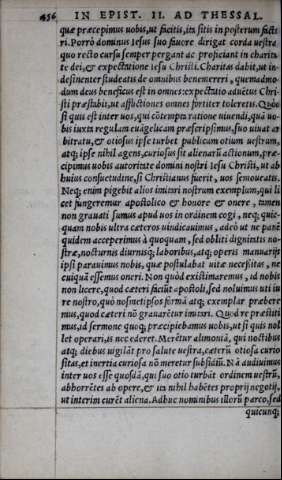 456 IN EPIST. II. AD THESSAL.
quæ præcepimus uobis, ut facitis, ita sitis in posterum factu
ri. Porrò dominus Iesus suo fauore dirigat corda uestra
quo recto cursu semper pergant ac proficiant in charita
te dei, & expectatione Iesu Christi. Charitas dabit, ut in-
desinenter studeatis de omnibus benemereri, quemadmo-
dum deus beneficus est in omnes: expectatio aduētus Chri-
sti præstabit, ut afflictiones omnes fortiter toleretis. Quòd
si quis est inter uos, qui cōtempta ratione uiuendi, quā uo-
bis iuxta regulam euāgelicam præscripsimus, suo uiuat ar
bitratu, & otiosus ipse turbet publicum otium uestrum,
atq; ipse nihil agens, curiosus sit alienarū actionum, præ-
cipimus uobis autoritate domini nostri Iesu Christi, ut ab
huius consuetudine, si Christianus fuerit, uos semoueatis.
Neq; enim pigebit alios imitari nostrum exemplum, qui li
cet fungeremur apostolico & honore & onere, tamen
non grauati sumus apud uos in ordinem cogi, neq; quic-
quam nobis ultra cæteros uindicauimus, adeò ut ne panē
quidem acceperimus à quoquam, sed obliti dignitatis no-
stræ, nocturnis diurnisq; laboribus, atq; operis manuarijs
ipsi parauimus nobis, quæ postulabat uitæ necessitas, ne
cuiquā essemus oneri. Non quòd existimaremus, id nobis
non licere, quod cæteri faciūt apostoli, sed noluimus uti iu
re nostro, quò nosmetipsos formā atq; exemplar præbere
mus, quod cæteri nō grauarētur imitari. Quod re præstiti
mus, id sermone quoq; præcipiebamus uobis, ut si quis nol
let operari, is nec ederet. Merētur alimoniā, qui noctibus
atq; diebus uigilāt pro salute uestra, cæterū otiosa curio
sitas, et inertia curiosa nō meretur subsidiū. Nā audiuimus
inter uos esse quosdā, qui suo otio turbāt ordinem uestrū,
abhorrētes ab opere, & ita nihil habētes proprij negotij,
ut interim curēt aliena. Adhuc nominibus illorū parco, sed
quicunq;